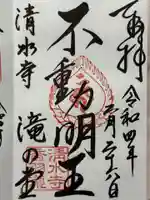 奉拝
令和四年
二月二十六日
不動明王
清水寺
滝の堂